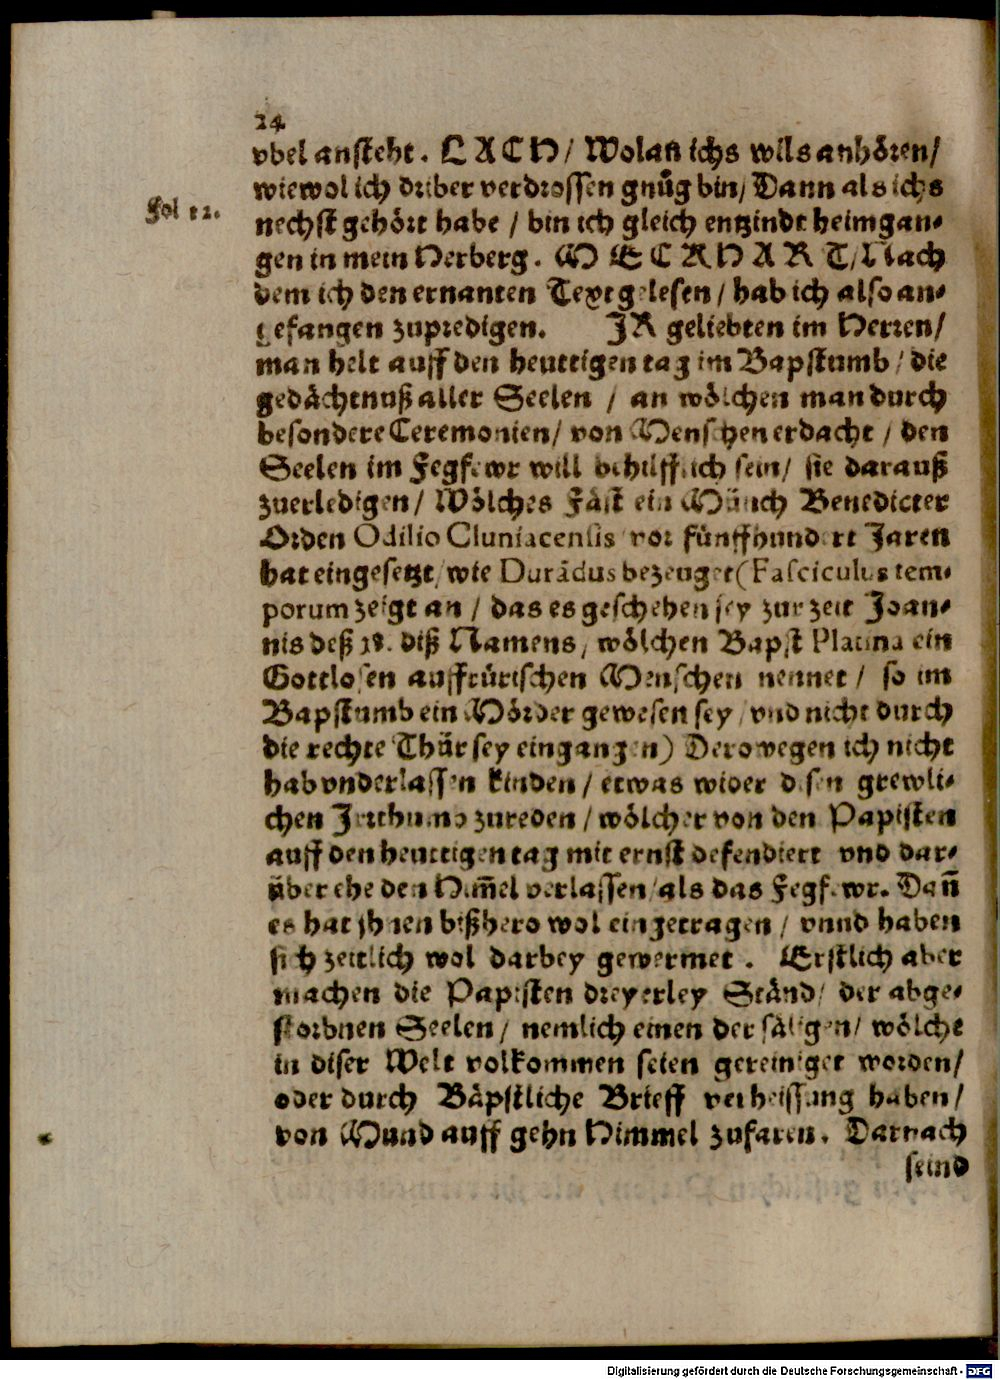 24
vbel ansteht. LACH/ Wolan ichs wils anhören/
wiewol ich drüber verdrossen gnůg bin/ Dann als ichs
Fol 12.
nechst gehört habe / bin ich gleich entzindt heimgan-
gen in mein Herberg. MECKHART/ Nach
dem ich den ernanten Text gelesen / hab ich also an-
gefangen zupredigen. IR geliebten im Herren/
man helt auff den heuttigen tag im Bapstumb / die
gedächtnuß aller Seelen / an wölchen man durch
besondere Ceremonien/ von Menschen erdacht / den
Seelen im Fegfewr will behilfflich sein/ sie darauß
zuerledigen/ Wölches Fäst ein Münch Benedicter
Orden Odilio Cluniacensis vor fünffhundert Jaren
hat eingesetzt/ wie Durādus bezeuget (Fasciculus tem-
porum zeigt an / das es geschehen sey zur zeit Joan-
nis deß 18. diß Namens, wölchen Bapst Platina ein
Gottlosen auffrürischen Menschen nennet / so im
Bapstumb ein Mörder gewesen sey / vnd nicht durch
die rechte Thür sey eingangen) Derowegen ich nicht
hab vnderlassen kinden / etwas wider disen grewli-
chen Irrthumb zureden / wölcher von den Papisten
auff den heuttigen tag mit ernst defendiert vnd dar-
über ehe den Him̄el verlassen/ als das Fegfewr. Dan̄
es hat jhnen bißhero wol eingetragen / vnnd haben
sich zeitlich wol darbey gewermet. Erstlich aber
machen die Papisten dreyerley Ständ/ der abge-
storbnen Seelen / nemlich einen der säligen/ wölche
in diser Welt volkommen seien gereiniget worden/
oder durch Bäpstliche Brieff verheissung haben /
von Mund auff gehn Himmel zufaren. Darnach
seind
Digitalisierung gefördert durch die Deutsche Forschungsgemeinschaft - DFG